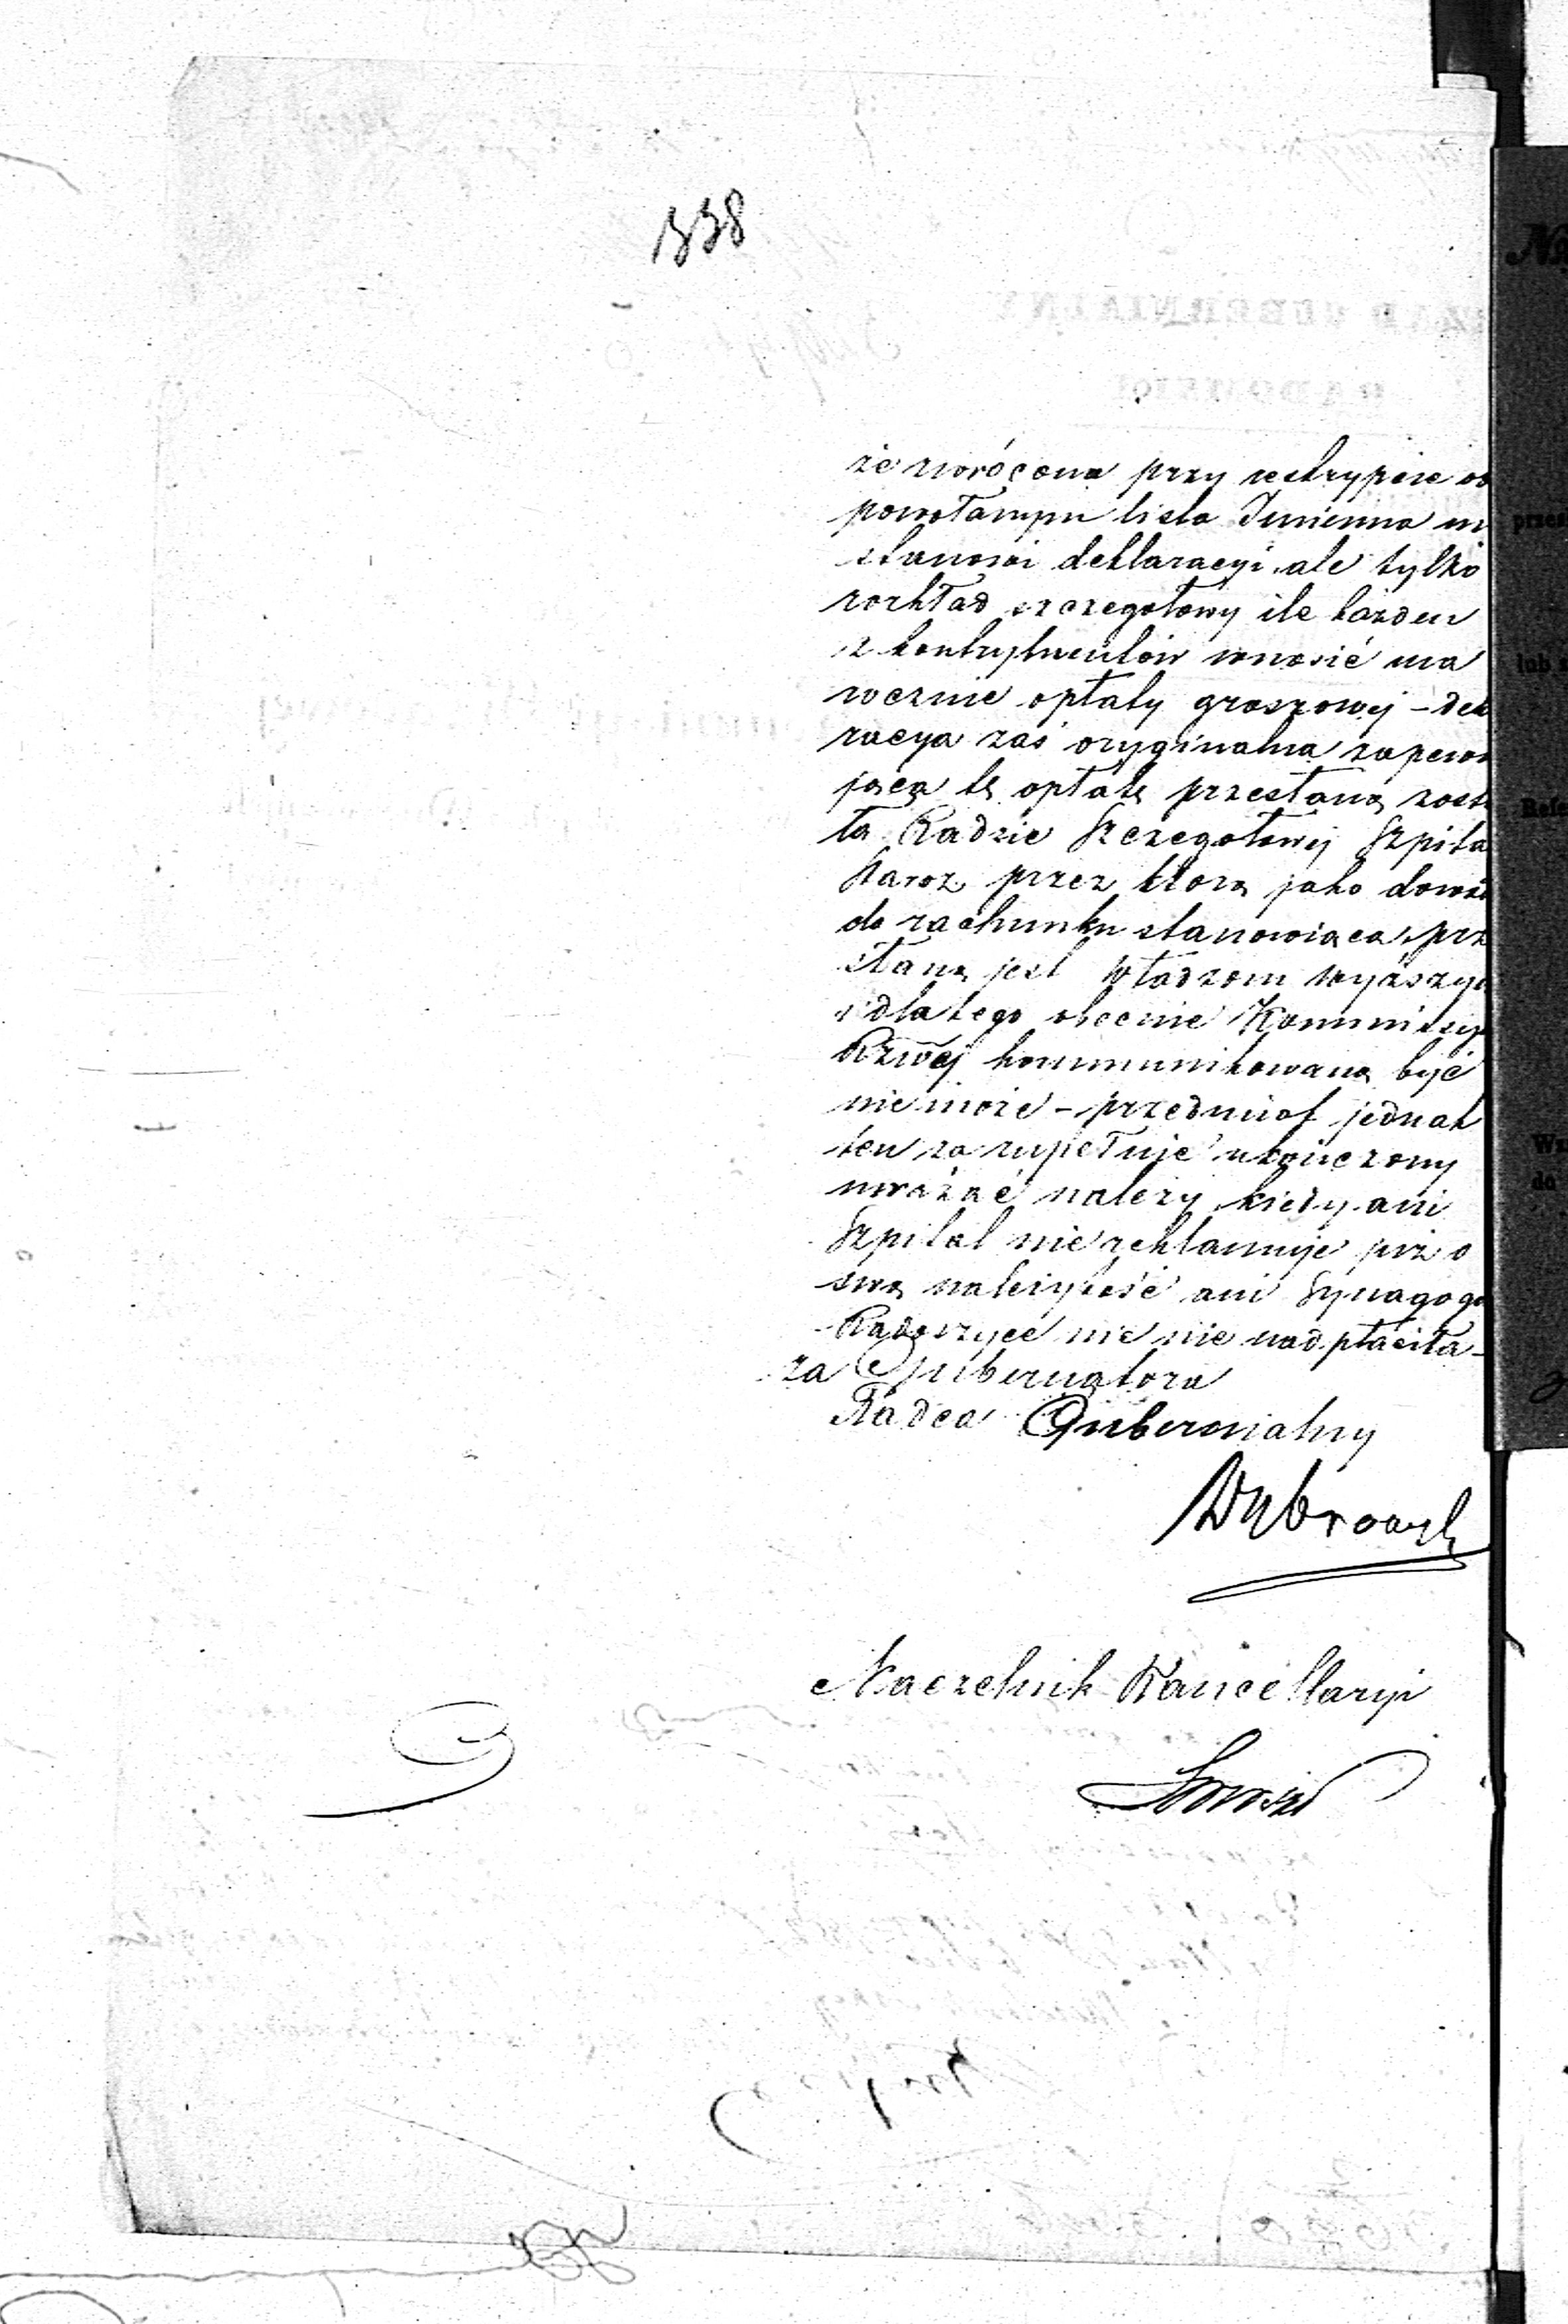 338
że zwrócona przy reskrypcie
powołanym lista Imienna
stanowi deklaracyi ale tylko
rozkład szczegółowy ile każden
z kontrybuentów wnosić ma
rocznie opłaty groszowej – dek
racya zaś oryginalna zapewn
jąca tę opłatę przesłaną zost
ła Radzie Szczegółowej Szpita
Staroz. przez którą jako dowód
do rachunku stanowiąca, prze
słaną jest Władzom wyższym
i dla tego obecnie Kommissyi
Rzwej kommunikowaną być
nie może – przedmiot jednak
ten za zupełnie ukończony
uważać należy kiedy ani
Szpital nie reklamuje już o
swą należytość ani Synagoga
Radoszyce nic nie nadpłaciła –
za Gubernatora
Radca Gubernialny
Naczelnik Kancellaryi